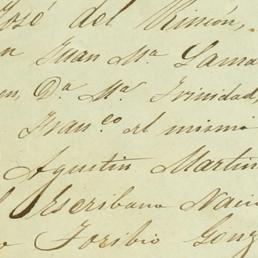 José del Rincón,
Juan Mª Lama
Dª Mª Trinidad,
Franco el mismo
Agustin Martin
Escribano Naci
Toribio Gonz